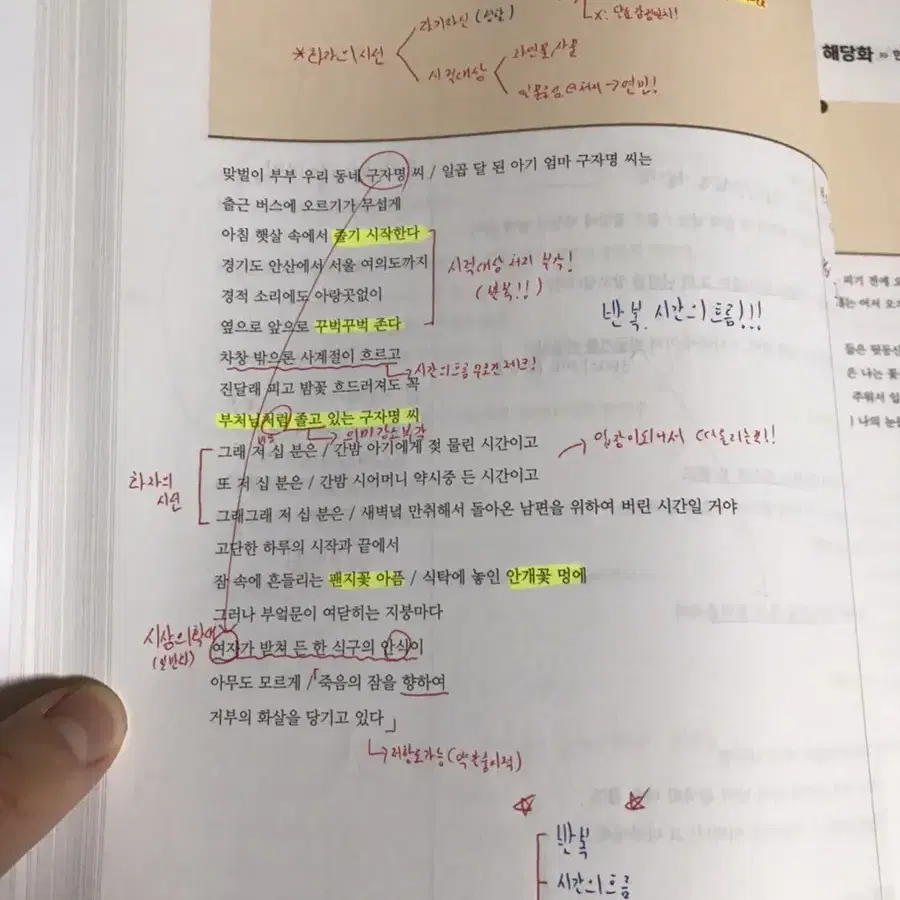 자기자신 (성찰)
X: 단순감정일치!
*화자의 시선
자연물/사물
시적대상
→연민!
해당화
맞벌이 부부 우리 동네 구자명 씨 / 일곱 달 된 아기 엄마 구자명 씨는
출근 버스에 오르기가 무섭게
아침 햇살 속에서 졸기 시작한다
경기도 안산에서 서울 여의도까지
시적대상 처지 부각!
경적 소리에도 아랑곳없이
(반복!!)
반복. 시간의 흐름!!!
옆으로 앞으로 꾸벅꾸벅 존다
차창 밖으론 사계절이 흐르고
→시간의 흐름 무조건 체크!
진달래 피고 밤꽃 흐드러져도 꼭
부처님처럼 졸고 있는 구자명 씨
→의미강조부각
그래 저 십 분은 / 간밤 아기에게 젖 물린 시간이고
화자의
시선
또 저 십 분은 / 간밤 시어머니 약시중 든 시간이고
그래그래 저 십 분은 / 새벽녘 만취해서 돌아온 남편을 위하여 버린 시간일 거야
고단한 하루의 시작과 끝에서
잠 속에 흔들리는 팬지꽃 아픔 / 식탁에 놓인 안개꽃 멍에
그러나 부엌문이 여닫히는 지붕마다
시상의 확대
(일반화)
여자가 받쳐 든 한 식구의 안식이
아무도 모르게 / 「죽음의 잠을 향하여
거부의 화살을 당기고 있다」
반복
시간의 흐름
피기 전에 오
들은 뒷동산
은 나는 꽃
주워서 입
나의 눈